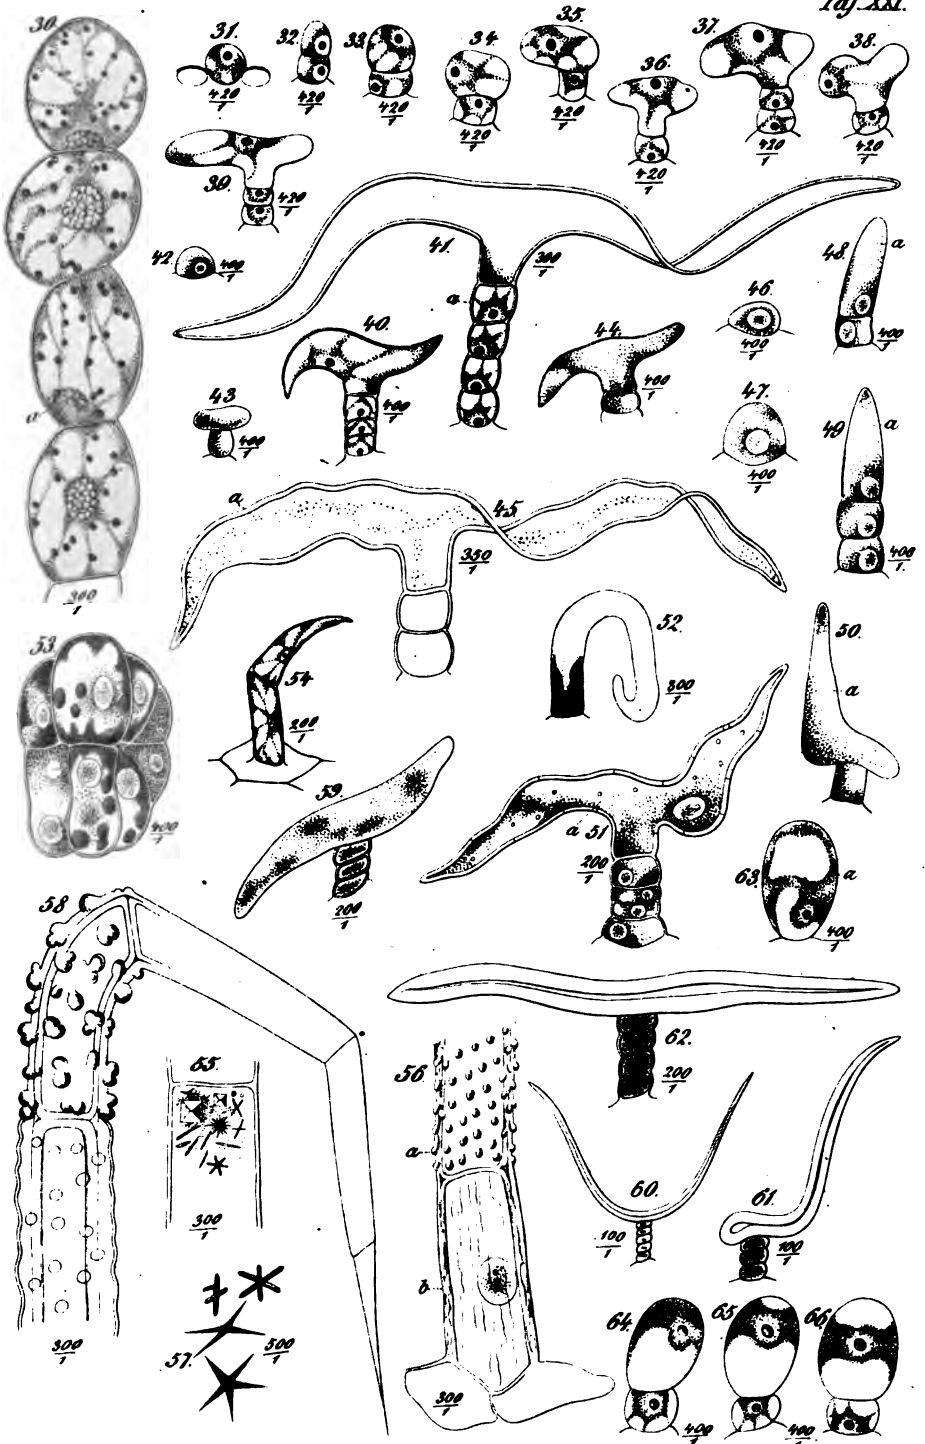 Taf. XXI.
30.
300/1
a
31.
420/1
32.
420/1
33.
420/1
34.
420/1
35.
420/1
36.
420/1
37.
420/1
38.
420/1
39.
420/1
40.
400/1
41.
a
300/1
42.
400/1
43
400/1
44.
400/1
45
a
350/1
46.
400/1
47.
400/1
48.
a
400/1
49
a
400/1.
50.
a
51
a
200/1
52.
300/1
53.
400/1
54
200/1
59.
200/1
63.
a
400/1
58
300/1
55.
300/1
56
a
b
300/1
57.
500/1
62.
200/1
60.
100/1
61.
100/1
64.
400/1
65.
400/1
66.